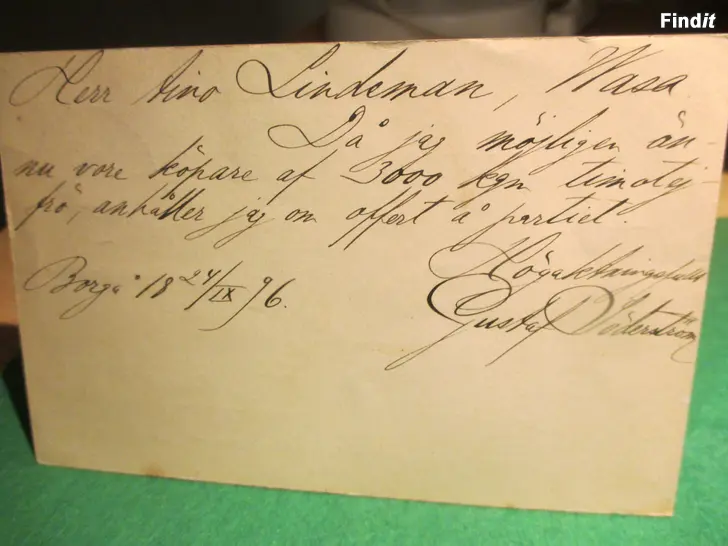 Findit
Herr Aino Lindeman, Wasa
Då jag möjligen än-
nu vore köpare af 3000 kgn timotej-
frö, anhåller jag om offert å partiet.
Högaktningsfullt
Borgå 18 24/IX 96.
Gustaf Söderström